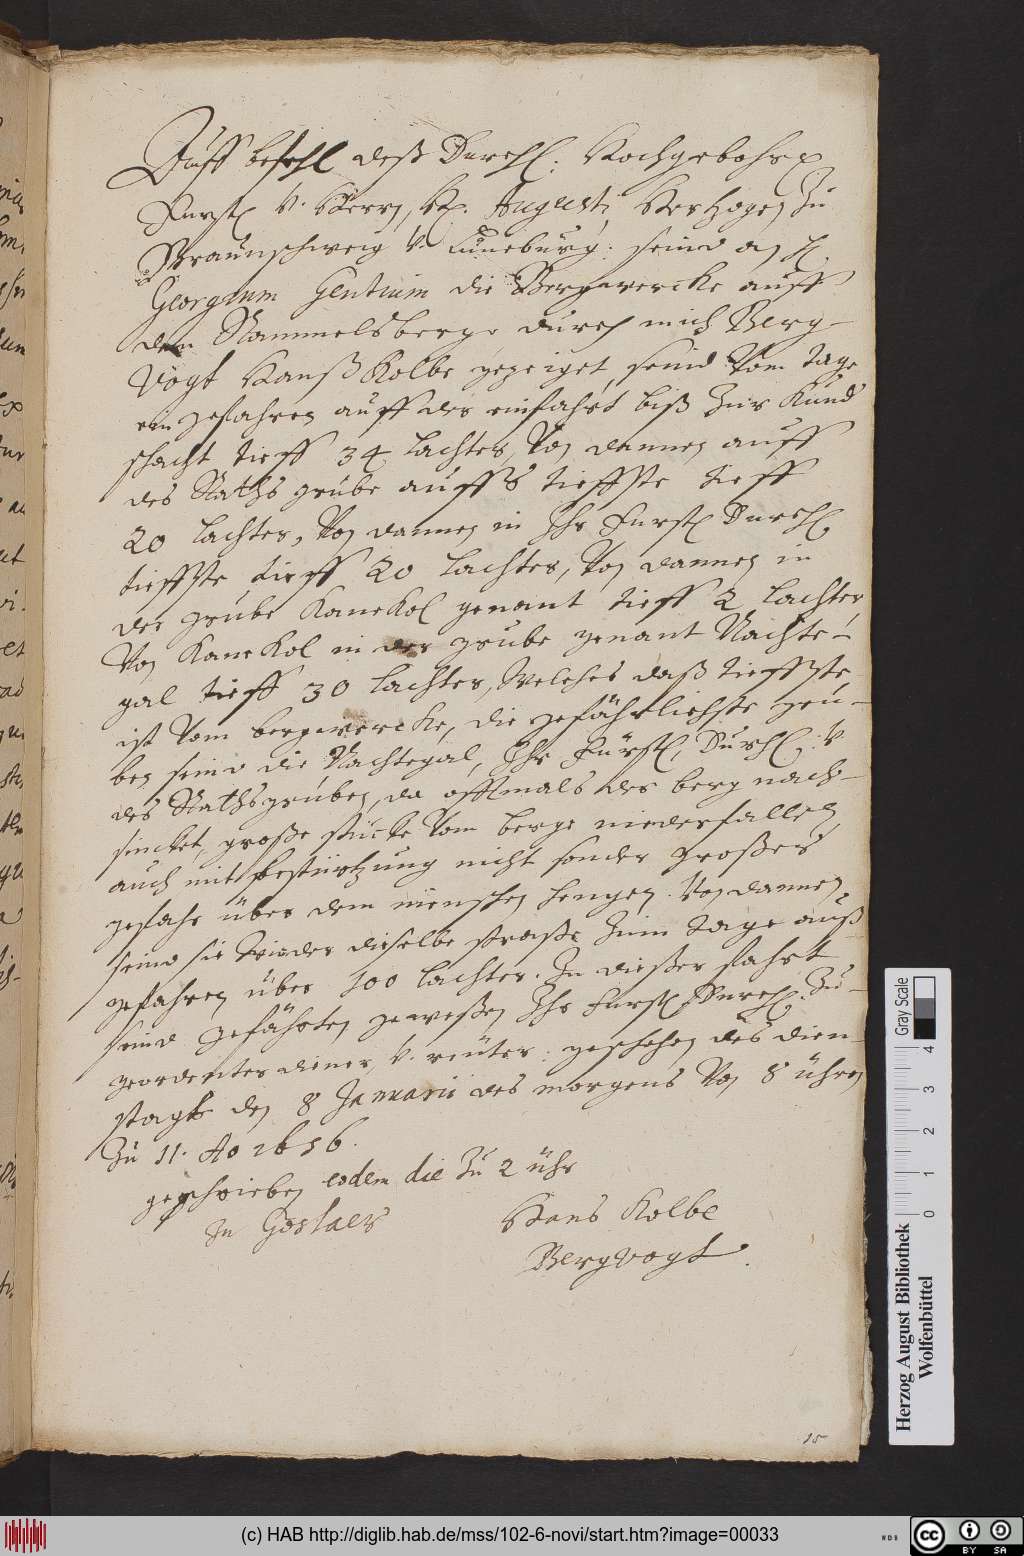 Auff befehl deß Durchl. Hochgebohrn
Fürstn v. Herrn, Hn. Augusti, Herhogen zu
Braunschweig v. Lüneburg: seind an H.
Georgium Gentium die Bergwercke auff
den Rammelsberge durch mich Berg-
Vogt Hanß Kolbe gezeiget, seind Vom tage
ein gefahren auff der einfahrt biß zur Kund
schacht tieff 34 lachter, Von dannen auff
des Raths grube auffs tieffste tieff
20 lachter, Von dannen in Ihr Fürstl Durchl.
tieffste, tieff 20 lachter, Von dannen in
der grube Kanekol genant tieff 2 lachter
Von Kanekol in der grube genant Nachte-
gal tieff 30 lachter, Welches daß tieffste
ist Vom bergwercke, die gefährlichste gru-
ben seind die Nachtegal, Ihr Fürstl. Durchl. v
des Rathsgruben, da offtmals der berg nach-
sincket, große stücke Vom berge niederfallen
auch mit bestürtzung nicht sonder großer
gefahr über dem menschen hengen. Von dannen
seind sie wieder dieselbe straße zum tage auß
gefahren über 100 lachter. In dießer fahrt
seind gefährten geweßen Ihr Fürstl Durchl. zu-
geordenter diener v. reüter: geschehen des dien-
stags den 8 Januarii des morgens Von 8 uhren
zu 11. Ao 1656.
geschrieben eodem die zu 2 uhr
In Goslaer
Hans Kolbe
Bergvogt.
15
Gray Scale
0 1 2 3 4
Herzog August Bibliothek
Wolfenbüttel
(c) HAB http://diglib.hab.de/mss/102-6-novi/start.htm?image=00033
WDB
cc BY SA